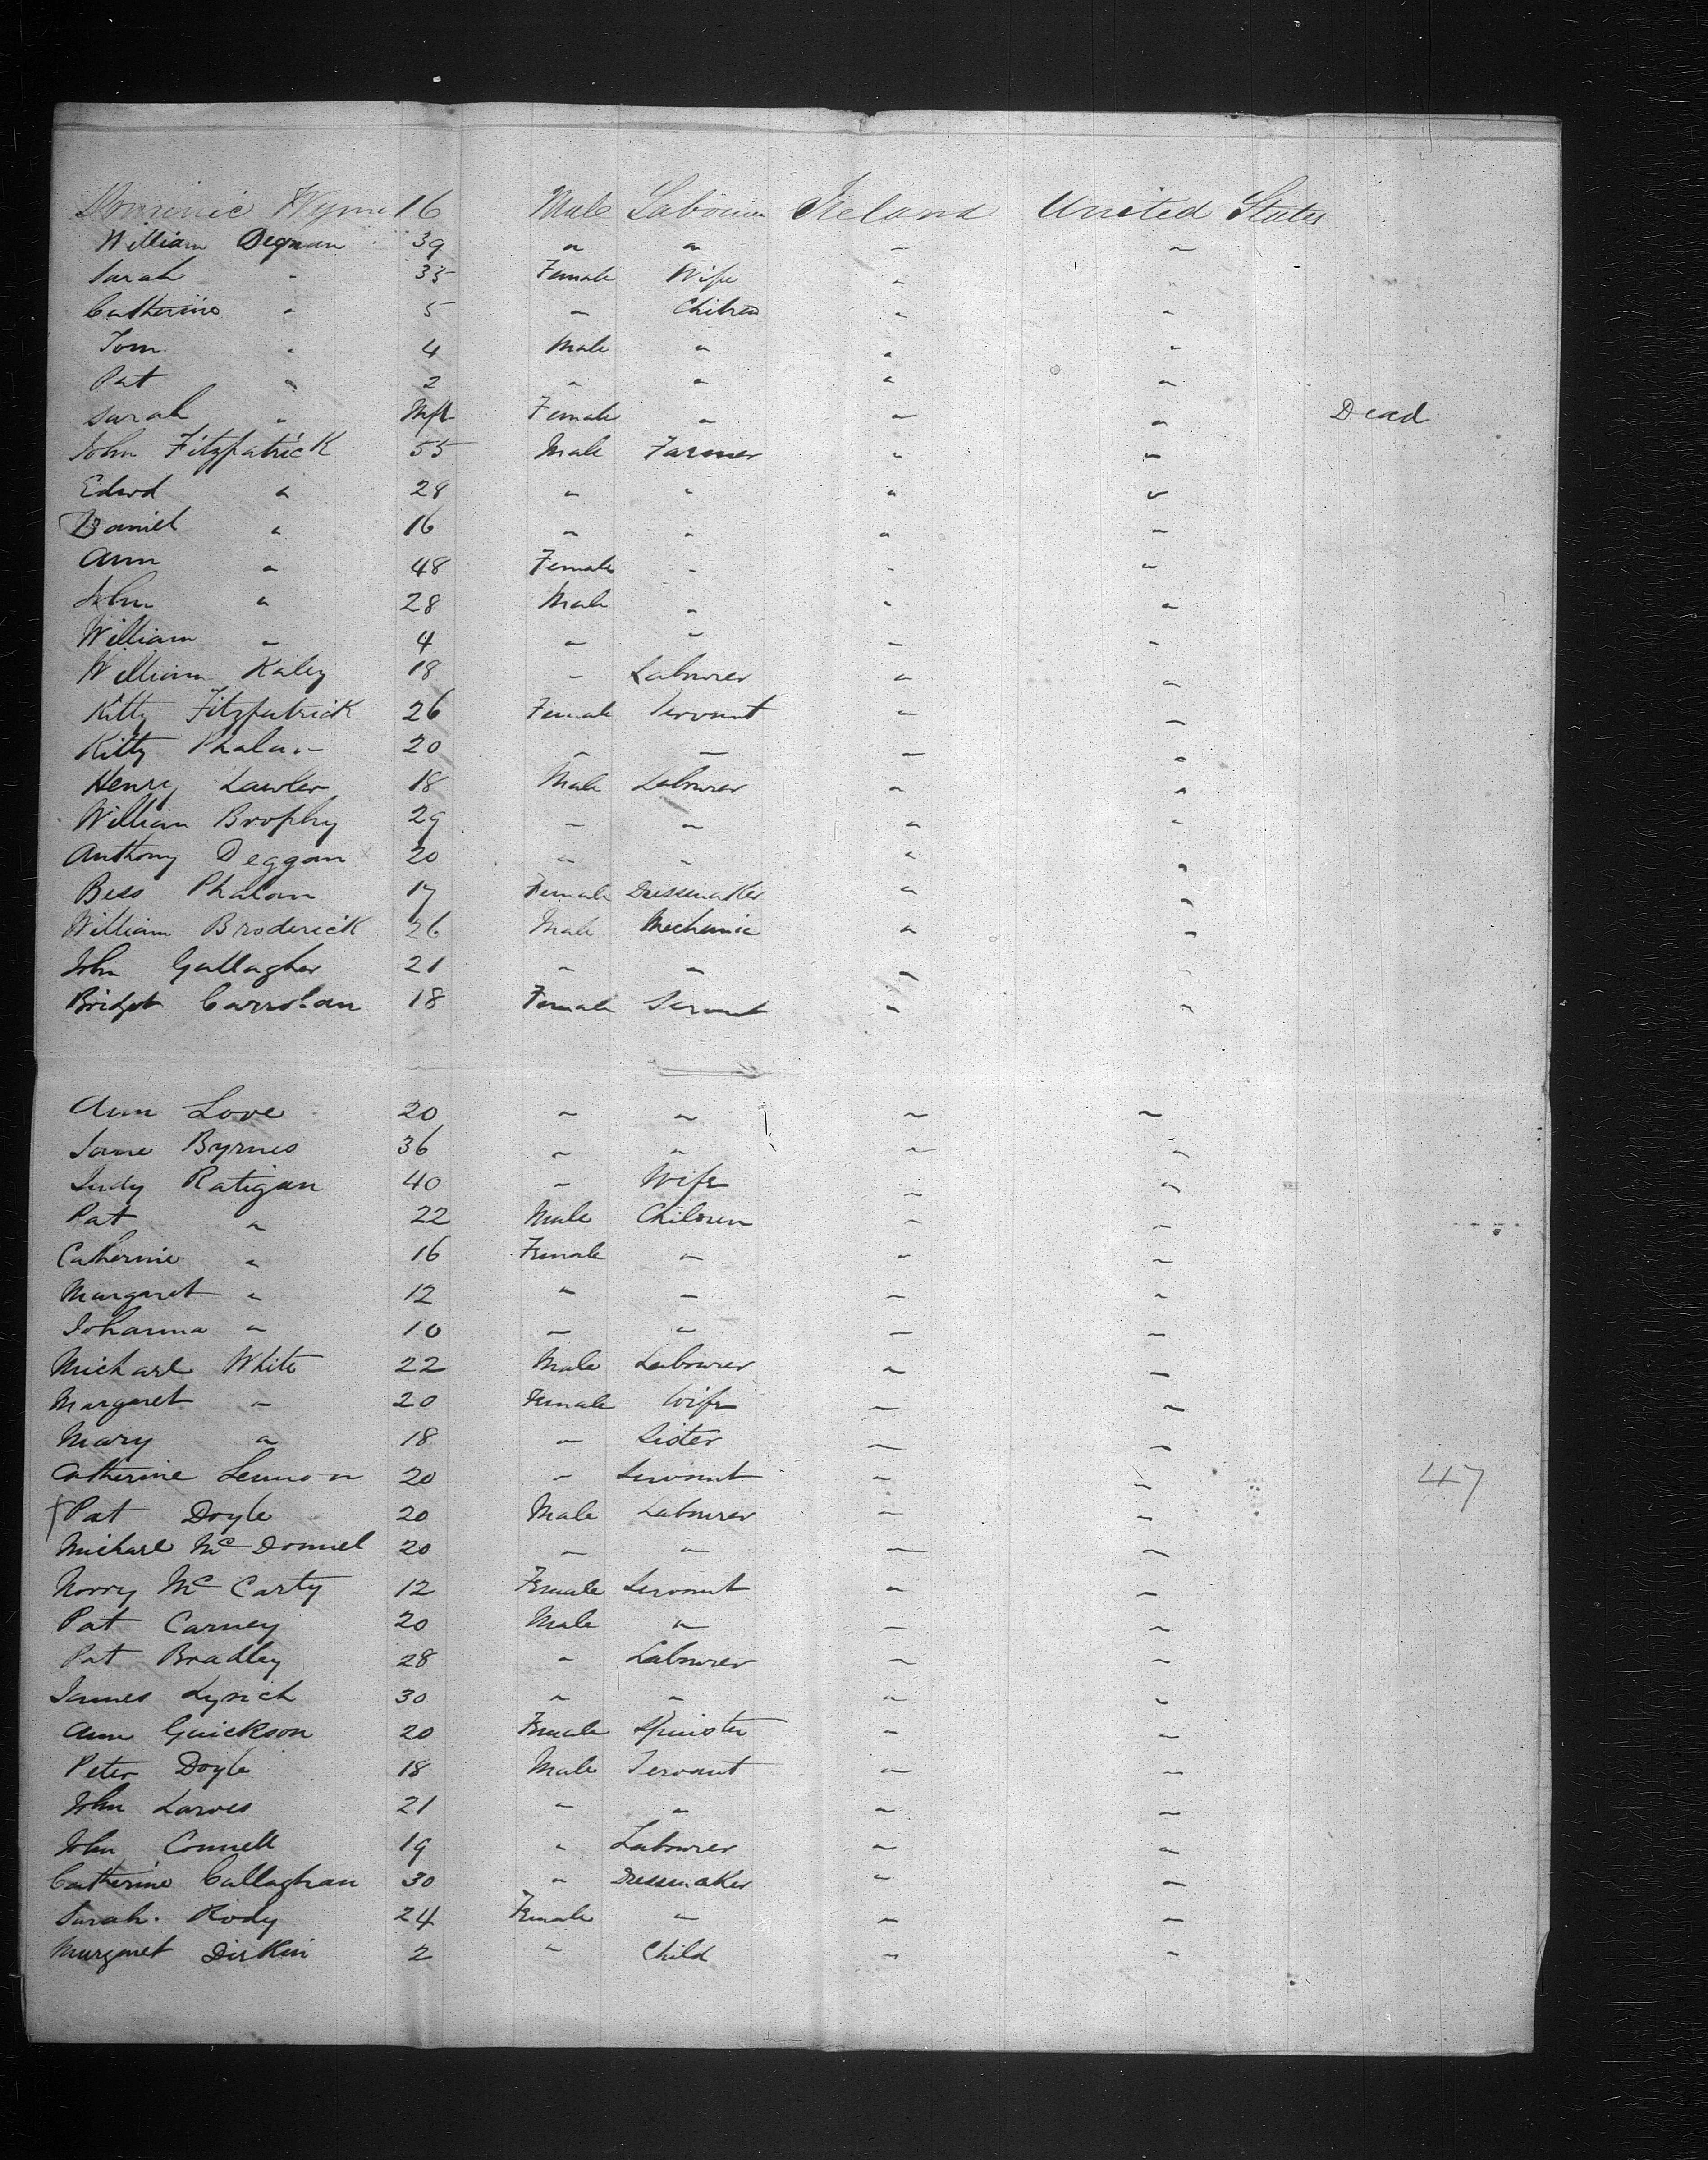 Dominic Wynn 16 Male Labourer Ireland United States
William Degnan 39 " " " "
Sarah " 35 Female Wife " "
Catherine " 5 " Children " "
Tom " 4 Male " " "
Pat " 2 " " " "
Sarah " Inft Female " " " Dead
John Fitzpatrick 55 Male Farmer " "
Edwd " 28 " " " "
Daniel " 16 " " " "
Ann " 48 Female " " "
John " 28 Male " " "
William " 4 " " " "
William Kaley 18 " Labourer " "
Kitty Fitzpatrick 26 Female Servant " "
Kitty Phalan 20 " " " "
Henry Lawler 18 Male Labourer " "
William Brophy 29 " " " "
Anthony Deggan 20 " " " "
Bess Phalan 17 Female Dressmaker " "
William Broderick 26 Male Mechanic " "
John Gallagher 21 " " " "
Bridget Carrolan 18 Female Servant " "
Ann Love 20 " " " "
Jane Byrnes 36 " " " "
Judy Ratigan 40 " Wife " "
Pat " 22 Male Children " "
Catherine " 16 Female " " "
Margaret " 12 " " " "
Johanna " 10 " " " "
Michael White 22 Male Labourer " "
Margaret " 20 Female Wife " "
Mary " 18 " Sister " "
Catherine Lennon 20 " Servant " " 47
Pat Doyle 20 Male Labourer " "
Michael Mc Donnel 20 " " " "
Norry Mc Carty 12 Female Servant " "
Pat Carney 20 Male " " "
Pat Bradley 28 " Labourer " "
James Lynch 30 " " " "
Ann Guickson 20 Female Spinster " "
Peter Doyle 18 Male Servant " "
John Larves 21 " " " "
John Connell 19 " Labourer " "
Catherine Callaghan 30 " Dressmaker " "
Sarah Kody 24 Female " " "
Margaret Dirkin 2 " Child " "